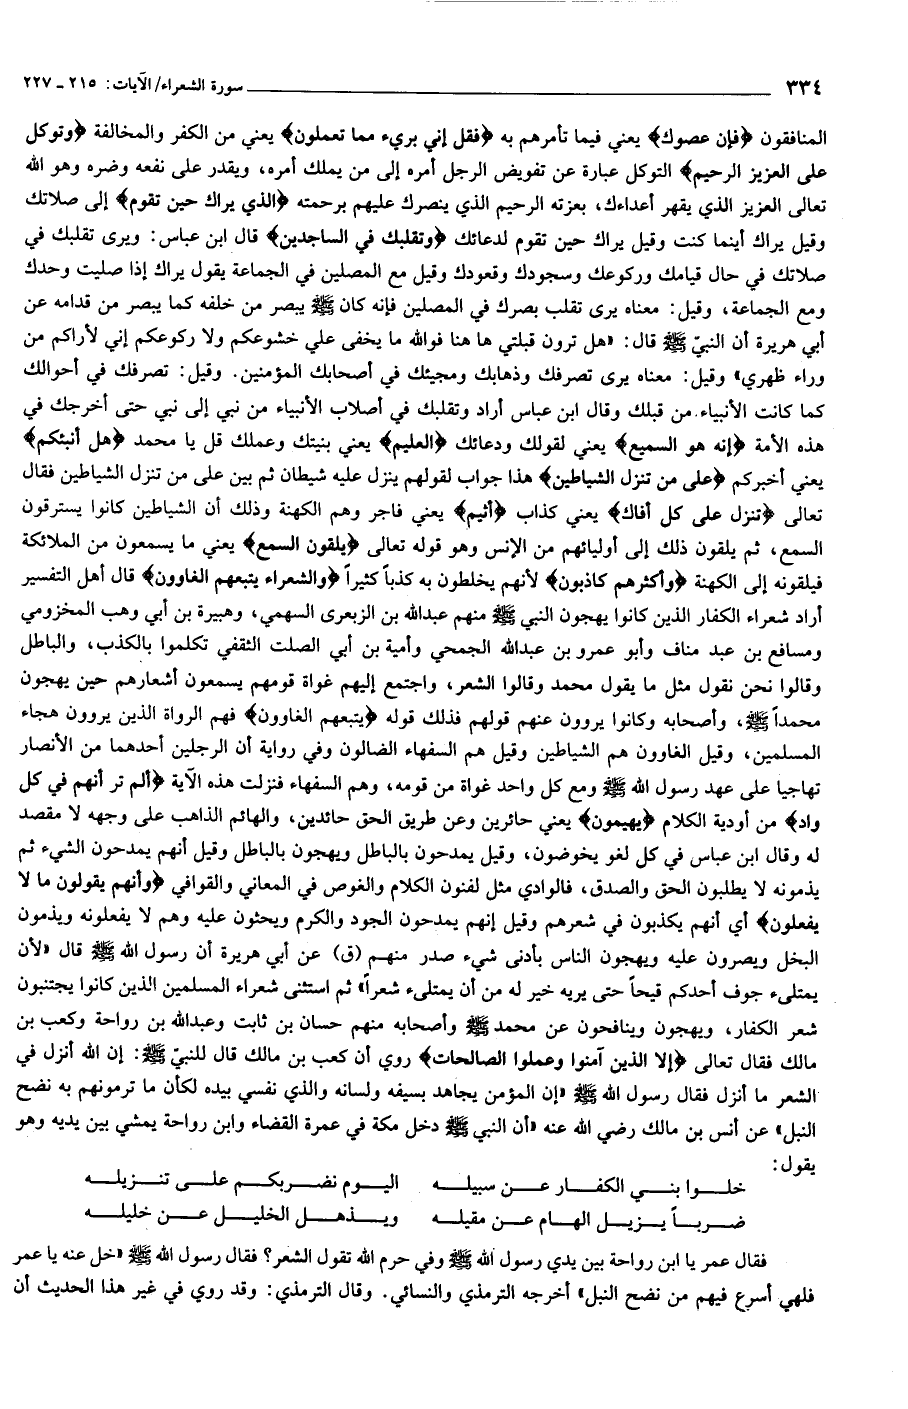 ٣٣٤ سورة الشعراء/ الآيات: ٢١٥ ـ ٢٢٧
المنافقون ﴿فإن عصوك﴾ يعني فيما تأمرهم به ﴿فقل إني بريء مما تعملون﴾ يعني من الكفر والمخالفة ﴿وتوكل
على العزيز الرحيم﴾ التوكل عبارة عن تفويض الرجل أمره إلى من يملك أمره، ويقدر على نفعه وضره وهو الله
تعالى العزيز الذي يقهر أعداءك، بعزته الرحيم الذي ينصرك عليهم برحمته ﴿الذي يراك حين تقوم﴾ إلى صلاتك
وقيل يراك أينما كنت وقيل يراك حين تقوم لدعائك ﴿وتقلبك في الساجدين﴾ قال ابن عباس: ويرى تقلبك في
صلاتك في حال قيامك وركوعك وسجودك وقعودك وقيل مع المصلين في الجماعة يقول يراك إذا صليت وحدك
ومع الجماعة، وقيل: معناه يرى تقلب بصرك في المصلين فإنه كان ﷺ يبصر من خلفه كما يبصر من قدامه عن
أبي هريرة أن النبيّ ﷺ قال: «هل ترون قبلتي ها هنا فوالله ما يخفى علي خشوعكم ولا ركوعكم إني لأراكم من
وراء ظهري» وقيل: معناه يرى تصرفك وذهابك ومجيئك في أصحابك المؤمنين. وقيل: تصرفك في أحوالك
كما كانت الأنبياء من قبلك وقال ابن عباس أراد وتقلبك في أصلاب الأنبياء من نبي إلى نبي حتى أخرجك في
هذه الأمة ﴿إنه هو السميع﴾ يعني لقولك ودعائك ﴿العليم﴾ يعني بنيتك وعملك قل يا محمد ﴿هل أنبئكم﴾
يعني أخبركم ﴿على من تنزل الشياطين﴾ هذا جواب لقولهم ينزل عليه شيطان ثم بين على من تنزل الشياطين فقال
تعالى ﴿تنزل على كل أفاك﴾ يعني كذاب ﴿أثيم﴾ يعني فاجر وهم الكهنة وذلك أن الشياطين كانوا يسترقون
السمع، ثم يلقون ذلك إلى أوليائهم من الإنس وهو قوله تعالى ﴿يلقون السمع﴾ يعني ما يسمعون من الملائكة
فيلقونه إلى الكهنة ﴿وأكثرهم كاذبون﴾ لأنهم يخلطون به كذباً كثيراً ﴿والشعراء يتبعهم الغاوون﴾ قال أهل التفسير
أراد شعراء الكفار الذين كانوا يهجون النبي ﷺ منهم عبدالله بن الزبعرى السهمي، وهبيرة بن أبي وهب المخزومي
ومسافع بن عبد مناف وأبو عمرو بن عبدالله الجمحي وأمية بن أبي الصلت الثقفي تكلموا بالكذب، والباطل
وقالوا نحن نقول مثل ما يقول محمد وقالوا الشعر، واجتمع إليهم غواة قومهم يسمعون أشعارهم حين يهجون
محمداً ﷺ، وأصحابه وكانوا يروون عنهم قولهم فذلك قوله ﴿يتبعهم الغاوون﴾ فهم الرواة الذين يروون هجاء
المسلمين، وقيل الغاوون هم الشياطين وقيل هم السفهاء الضالون وفي رواية أن الرجلين أحدهما من الأنصار
تهاجيا على عهد رسول الله ﷺ ومع كل واحد غواة من قومه، وهم السفهاء فنزلت هذه الآية ﴿ألم تر أنهم في كل
واد﴾ من أودية الكلام ﴿يهيمون﴾ يعني حائرين وعن طريق الحق حائدين، والهائم الذاهب على وجهه لا مقصد
له وقال ابن عباس في كل لغو يخوضون، وقيل يمدحون بالباطل ويهجون بالباطل وقيل أنهم يمدحون الشيء ثم
يذمونه لا يطلبون الحق والصدق، فالوادي مثل لفنون الكلام والغوص في المعاني والقوافي ﴿وأنهم يقولون ما لا
يفعلون﴾ أي أنهم يكذبون في شعرهم وقيل إنهم يمدحون الجود والكرم ويحثون عليه وهم لا يفعلونه ويذمون
البخل ويصرون عليه ويهجون الناس بأدنى شيء صدر منهم (ق) عن أبي هريرة أن رسول الله ﷺ قال «لأن
يمتلىء جوف أحدكم قيحاً حتى يريه خير له من أن يمتلىء شعراً» ثم استثنى شعراء المسلمين الذين كانوا يجتنبون
شعر الكفار، ويهجون وينافحون عن محمد ﷺ وأصحابه منهم حسان بن ثابت وعبدالله بن رواحة وكعب بن
مالك فقال تعالى ﴿إلا الذين آمنوا وعملوا الصالحات﴾ روي أن كعب بن مالك قال للنبيّ ﷺ: إن الله أنزل في
الشعر ما أنزل فقال رسول الله ﷺ «إن المؤمن يجاهد بسيفه ولسانه والذي نفسي بيده لكأن ما ترمونهم به نضح
النبل» عن أنس بن مالك رضي الله عنه «أن النبي ﷺ دخل مكة في عمرة القضاء وابن رواحة يمشي بين يديه وهو
يقول:
خلوا بني الكفار عن سبيله اليوم نضربكم على تنزيله
ضرباً يزيل الهام عن مقيله ويذهل الخليل عن خليله
فقال عمر يا ابن رواحة بين يدي رسول الله ﷺ وفي حرم الله تقول الشعر؟ فقال رسول الله ﷺ «خل عنه يا عمر
فلهي أسرع فيهم من نضح النبل» أخرجه الترمذي والنسائي. وقال الترمذي: وقد روي في غير هذا الحديث أن